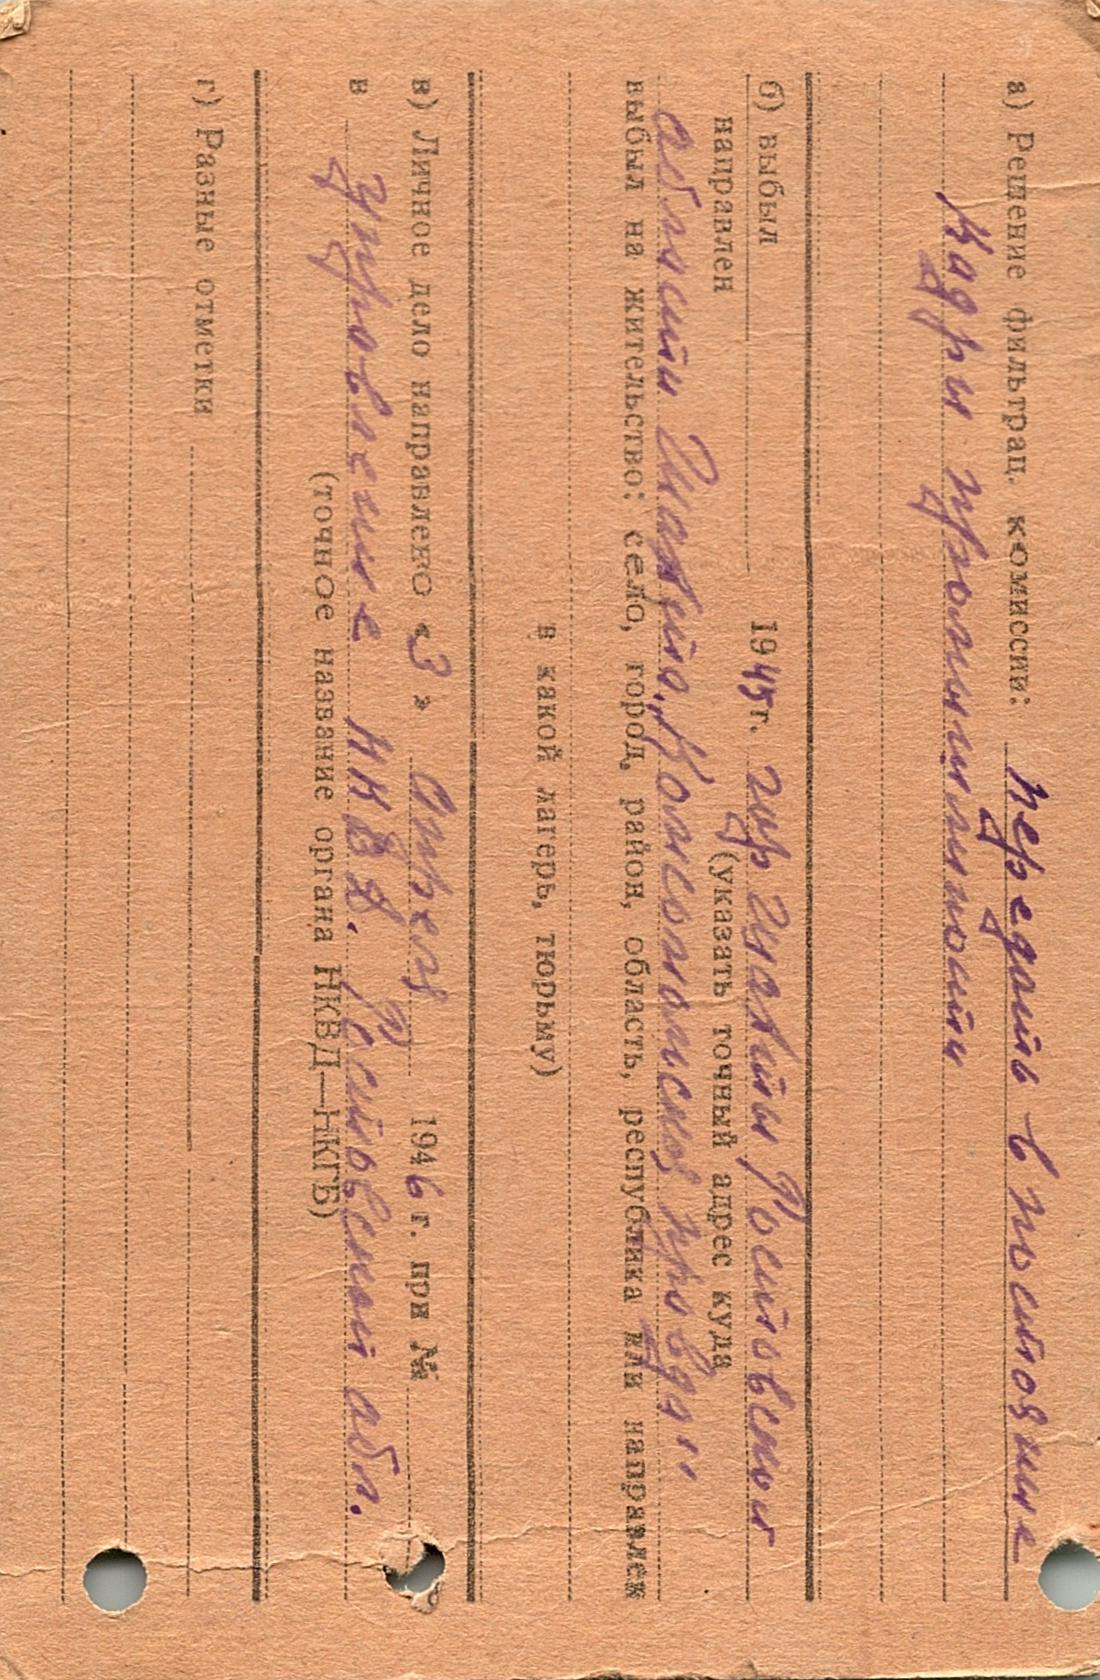 а) Решение фильтрац. комиссии: передать в постоянные
кадры промышленности
б) выбыл
направлен
1945 г. гор Шахты Ростовской
(указать точный адрес куда
области Шахта „Комсомольская правда".
выбыл на жительство: село, город, район, область, республика или направлен
в какой лагерь, тюрьму)
в) Личное дело направлено «3» апреля 1946 г. при №
в Управление НКВД. Ростовской обл.
(точное название органа НКВД—НКГБ)
г) Разные отметки